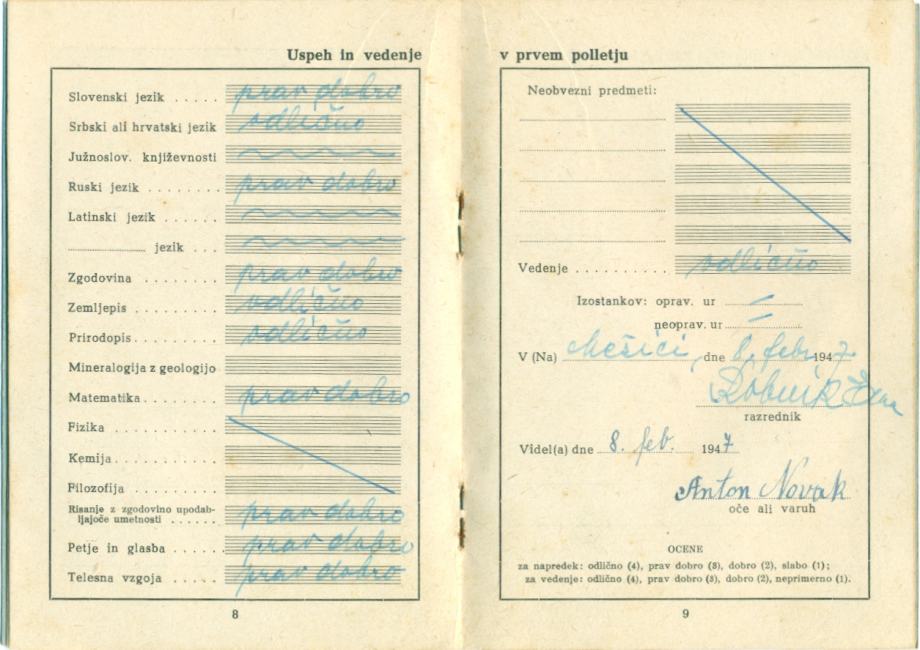 Uspeh in vedenje
Slovenski jezik ..... prav dobro
Srbski ali hrvatski jezik odlično
Južnoslov. književnosti
Ruski jezik ........ prav dobro
Latinski jezik ......
.............. jezik ...
Zgodovina ........ prav dobro
Zemljepis ......... odlično
Prirodopis ......... odlično
Mineralogija z geologijo
Matematika ......... prav dobro
Fizika ............
Kemija ............
Filozofija ..........
Risanje z zgodovino upodab-
ljajoče umetnosti ...... prav dobro
Petje in glasba ...... prav dobro
Telesna vzgoja ...... prav dobro
8
v prvem polletju
Neobvezni predmeti:
Vedenje .......... odlično
Izostankov: oprav. ur /
neoprav. ur /
V (Na) Mežici, dne 8. febr. 1947
Robnik
razrednik
Videl(a) dne 8. feb. 1947
Anton Novak
oče ali varuh
OCENE
za napredek: odlično (4), prav dobro (3), dobro (2), slabo (1);
za vedenje: odlično (4), prav dobro (3), dobro (2), neprimerno (1).
9